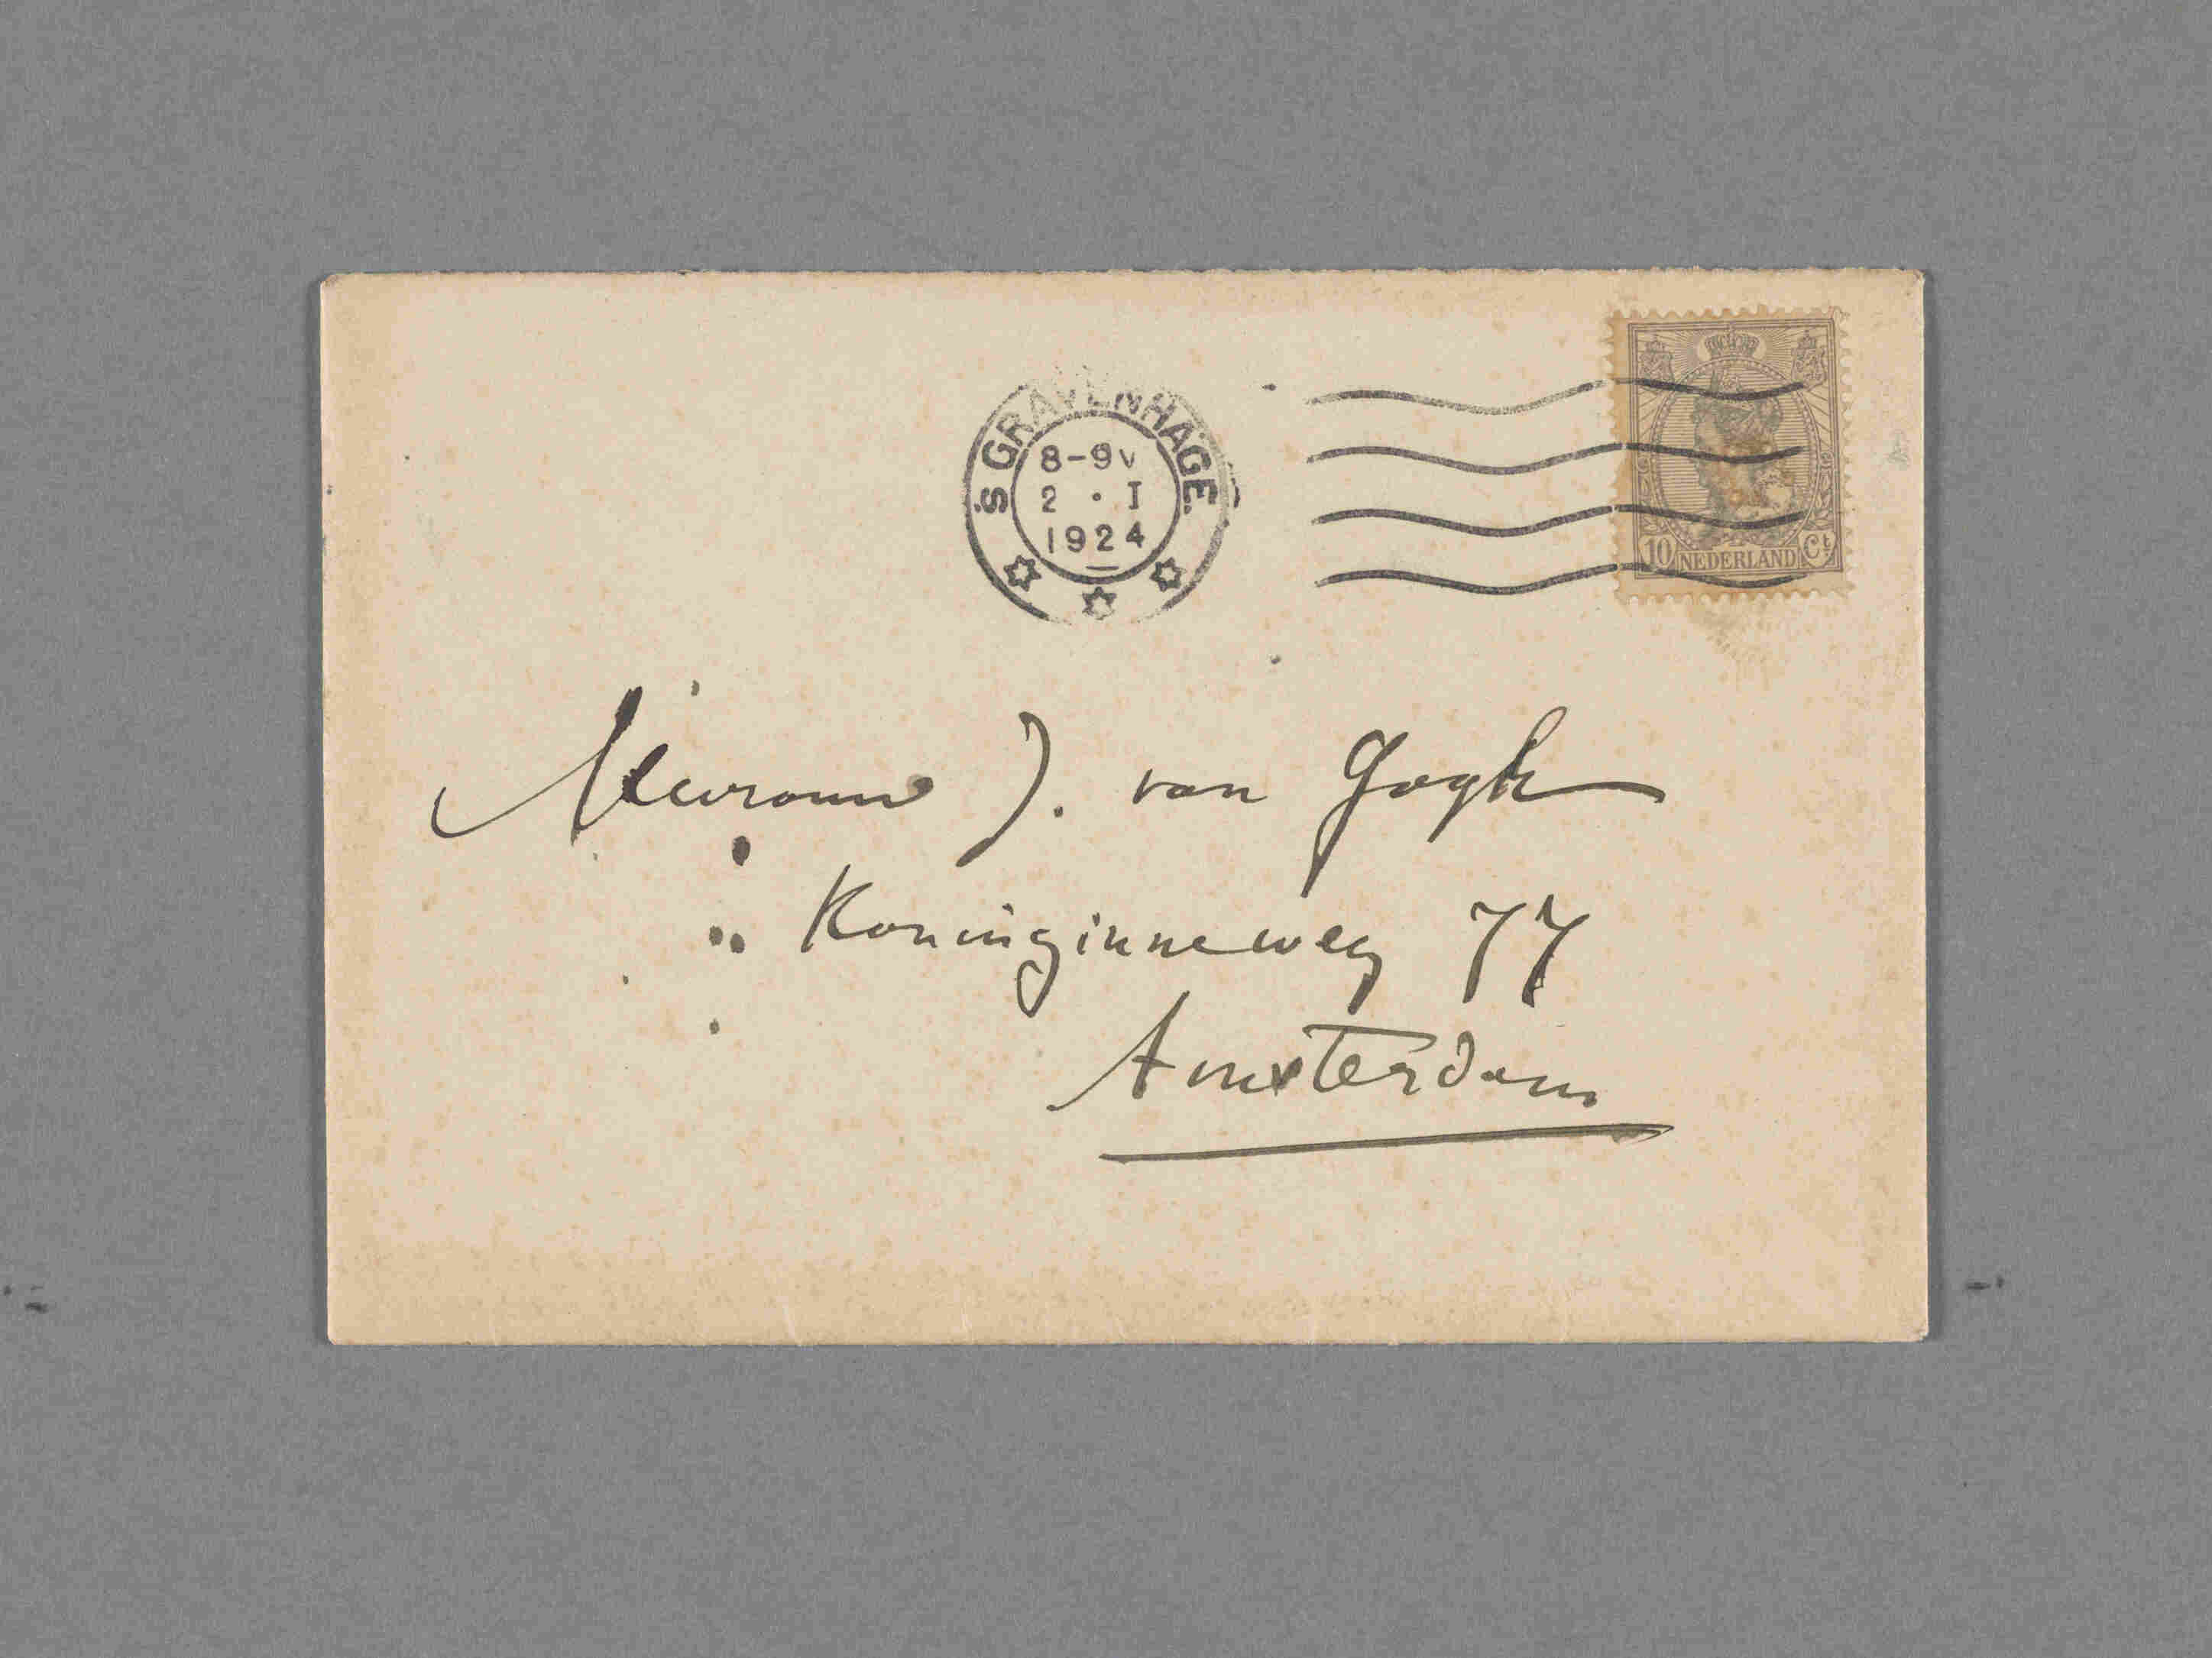 'S GRAVENHAGE.
8-9V
2 · I
1924
10 NEDERLAND Ct
Mevrouw J. van Gogh
Koninginneweg 77
Amsterdam